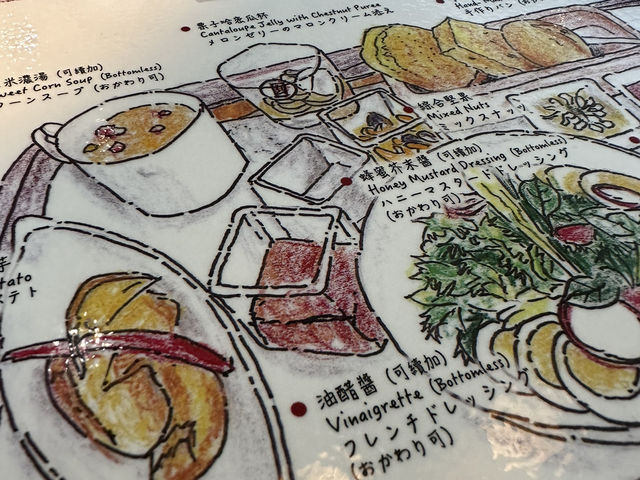 栗子哈蜜瓜杯
Cantaloupe Jelly with Chestnut Puree
メロンゼリーのマロンクリーム添え
手作りパン (お
米濃湯 (可續加)
weet Corn Soup (Bottomless)
ーンスープ (おかわり可)
綜合堅果
Mixed Nuts
ミックスナッツ
蜂蜜芥末醬 (可續加)
Honey Mustard Dressing (Bottomless)
ハニーマスタードドレッシング
(おかわり可)
芋
tato
ポテト
油醋醬 (可續加)
Vinaigrette (Bottomless)
フレンチドレッシング
(おかわり可)